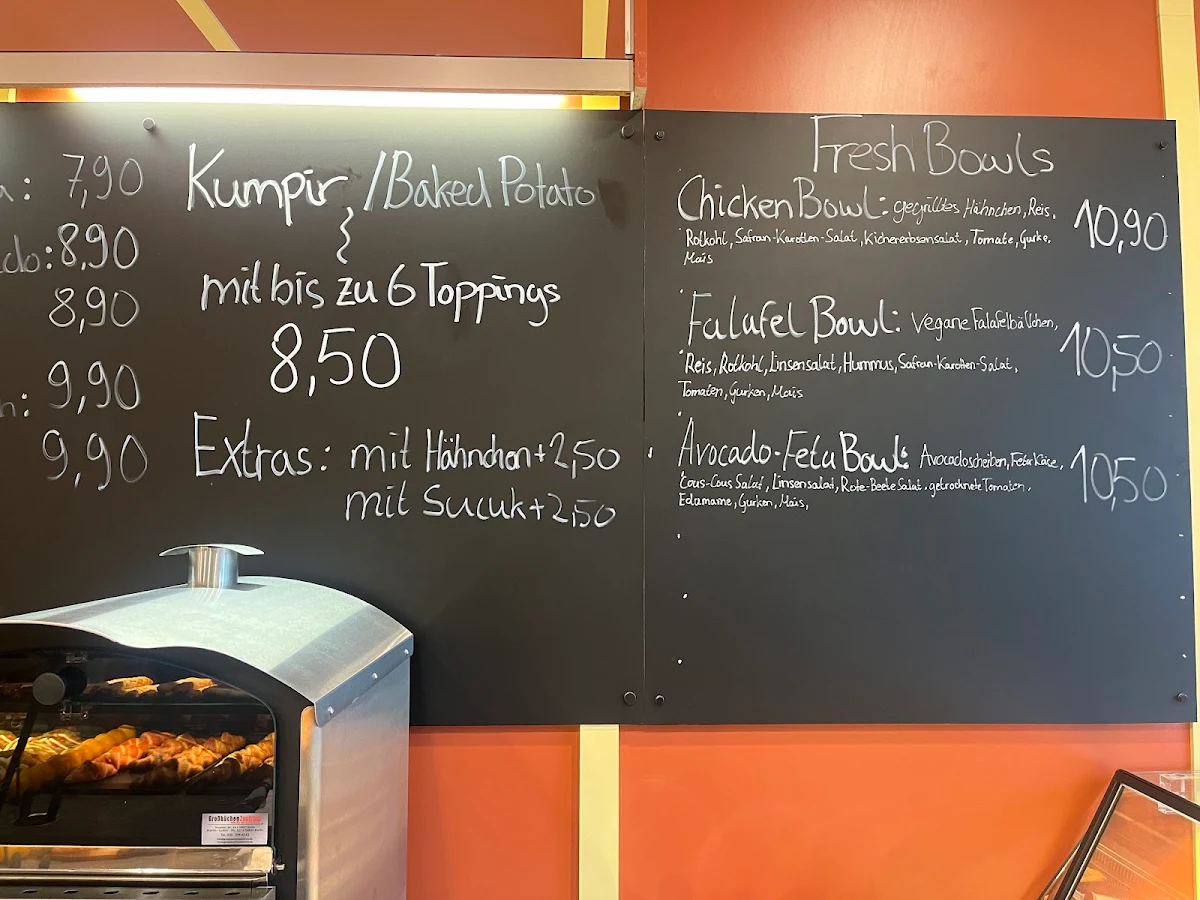 a: 7,90
do: 8,90
8,90
n: 9,90
9,90
Kumpir / Baked Potato
mit bis zu 6 Toppings
8,50
Extras: mit Hähnchen + 2,50
mit Sucuk + 2,50
Fresh Bowls
Chicken Bowl: gegrilltes Hähnchen, Reis, 10,90
Rotkohl, Safran-Karotten-Salat, Kichererbsensalat, Tomate, Gurke,
Mais
Falafel Bowl: Vegane Falafelbällchen, 10,50
Reis, Rotkohl, Linsensalat, Hummus, Safran-Karotten-Salat,
Tomaten, Gurken, Mais
Avocado-Feta Bowl: Avocadoscheiben, Feta Käse, 10,50
Cous-Cous Salat, Linsensalad, Rote-Beete Salat, getrocknete Tomaten,
Edamame, Gurken, Mais,
GroßküchenZentrum